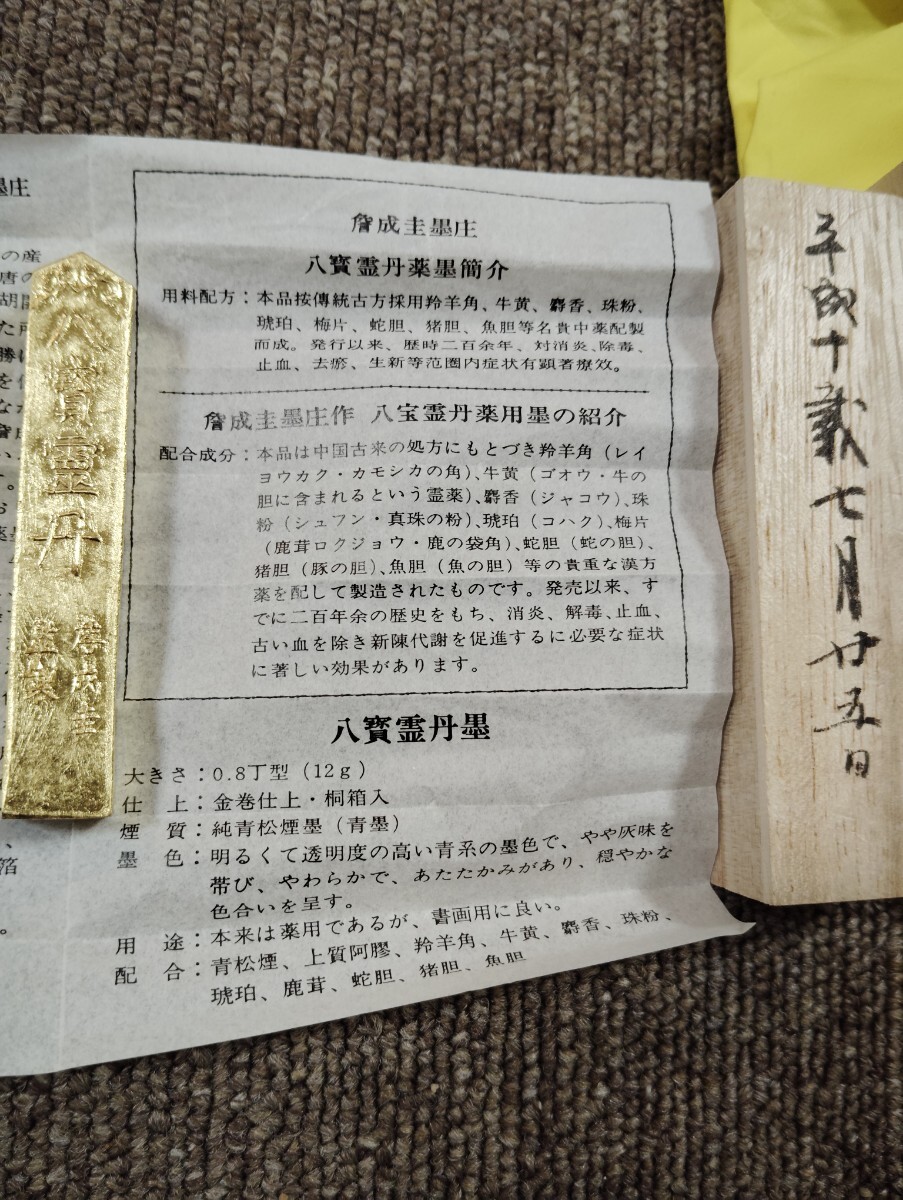 詹成圭墨庄
八寳霊丹薬墨簡介
用料配方：本品按傳統古方採用羚羊角、牛黄、麝香、珠粉、
琥珀、梅片、蛇胆、猪胆、魚胆等名貴中薬配製
而成。発行以来、歴時二百余年、対消炎、除毒、
止血、去瘀、生新等范圏内症状有顕著療效。
詹成圭墨庄作 八宝霊丹薬用墨の紹介
配合成分：本品は中国古来の処方にもとづき羚羊角（レイ
ヨウカク・カモシカの角）、牛黄（ゴオウ・牛の
胆に含まれるという霊薬）、麝香（ジャコウ）、珠
粉（シュフン・真珠の粉）、琥珀（コハク）、梅片
（鹿茸ロクジョウ・鹿の袋角）、蛇胆（蛇の胆）、
猪胆（豚の胆）、魚胆（魚の胆）等の貴重な漢方
薬を配して製造されたものです。発売以来、す
でに二百年余の歴史をもち、消炎、解毒、止血、
古い血を除き新陳代謝を促進するに必要な症状
に著しい効果があります。
八寳霊丹墨
大きさ：0.8丁型（12g）
仕　上：金巻仕上・桐箱入
煙　質：純青松煙墨（青墨）
墨　色：明るくて透明度の高い青系の墨色で、やや灰味を
帯び、やわらかで、あたたかみがあり、穏やかな
色合いを呈す。
用　途：本来は薬用であるが、書画用に良い。
配　合：青松煙、上質阿膠、羚羊角、牛黄、麝香、珠粉、
琥珀、鹿茸、蛇胆、猪胆、魚胆
八寶靈丹
詹成圭
監製
平成十載七月廿五日
墨庄
の産
唐の
胡開